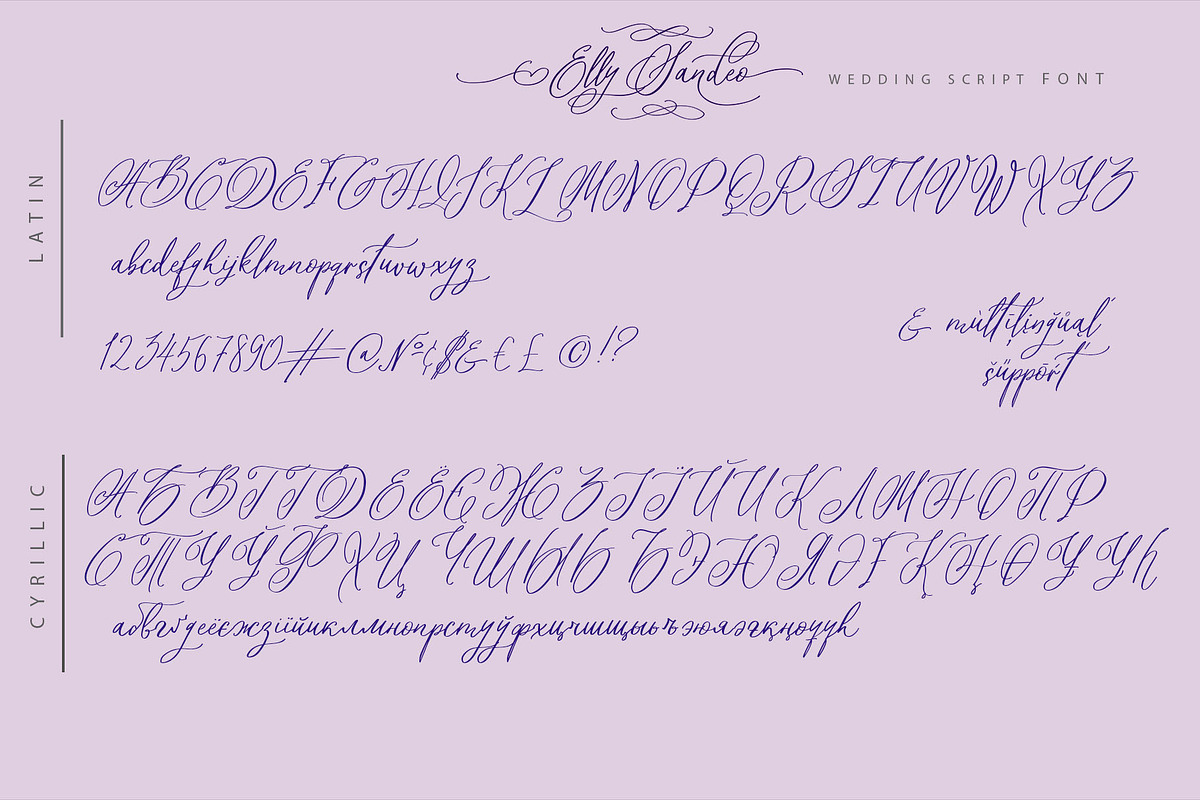 Elly Sandeo WEDDING SCRIPT FONT
LATIN
ABCDEFGHIJKLMNOPQRSTUVWXYZ
abcdefghijklmnopqrstuvwxyz
1234567890#@№¢$&€£ ©!?
& mùltīļįņğůąĺ
šüppōŕt
CYRILLIC
АБВГҐДЕЁЄЖЗІЇЙИКЛМНОПР
СТУЎФХЦЧШЫЬЪЭЮЯӘҒҚҢӨҰҮҺ
абвгґдеёєжзіїйиклмнопрстуўфхцчшщыьъэюяәғқңөұүһ